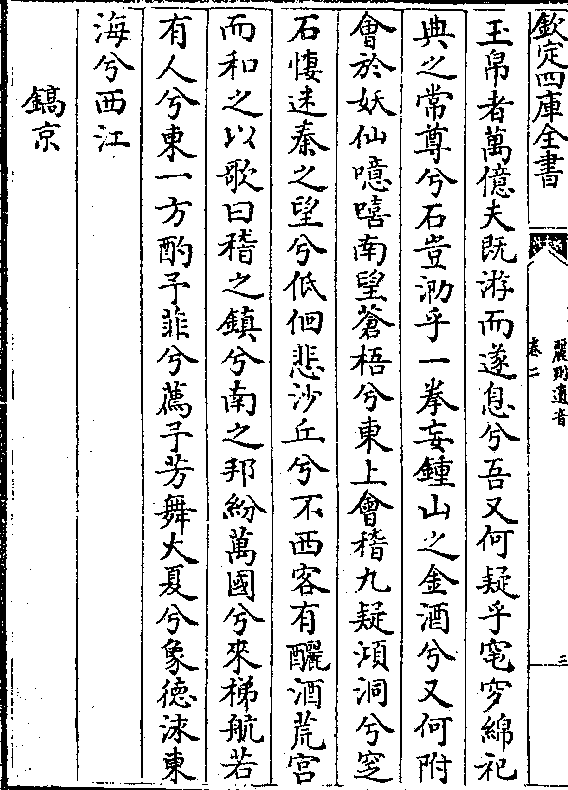 欽定四庫全書
麗則遺音
卷二
三
玉帛者萬億夫既游而遂息兮吾又何疑乎窀穸綿祀
典之常尊兮石豈泐乎一拳妄鍾山之金酒兮又何附
會於妖仙噫嘻南望蒼梧兮東上會稽九疑澒洞兮窆
石悽迷秦之望兮低佪悲沙丘兮不西客有釃酒荒宮
而和之以歌曰稽之鎮兮南之邦紛萬國兮來梯航若
有人兮東一方酌予菲兮薦予芳舞大夏兮象德洡東
海兮西江
鎬京